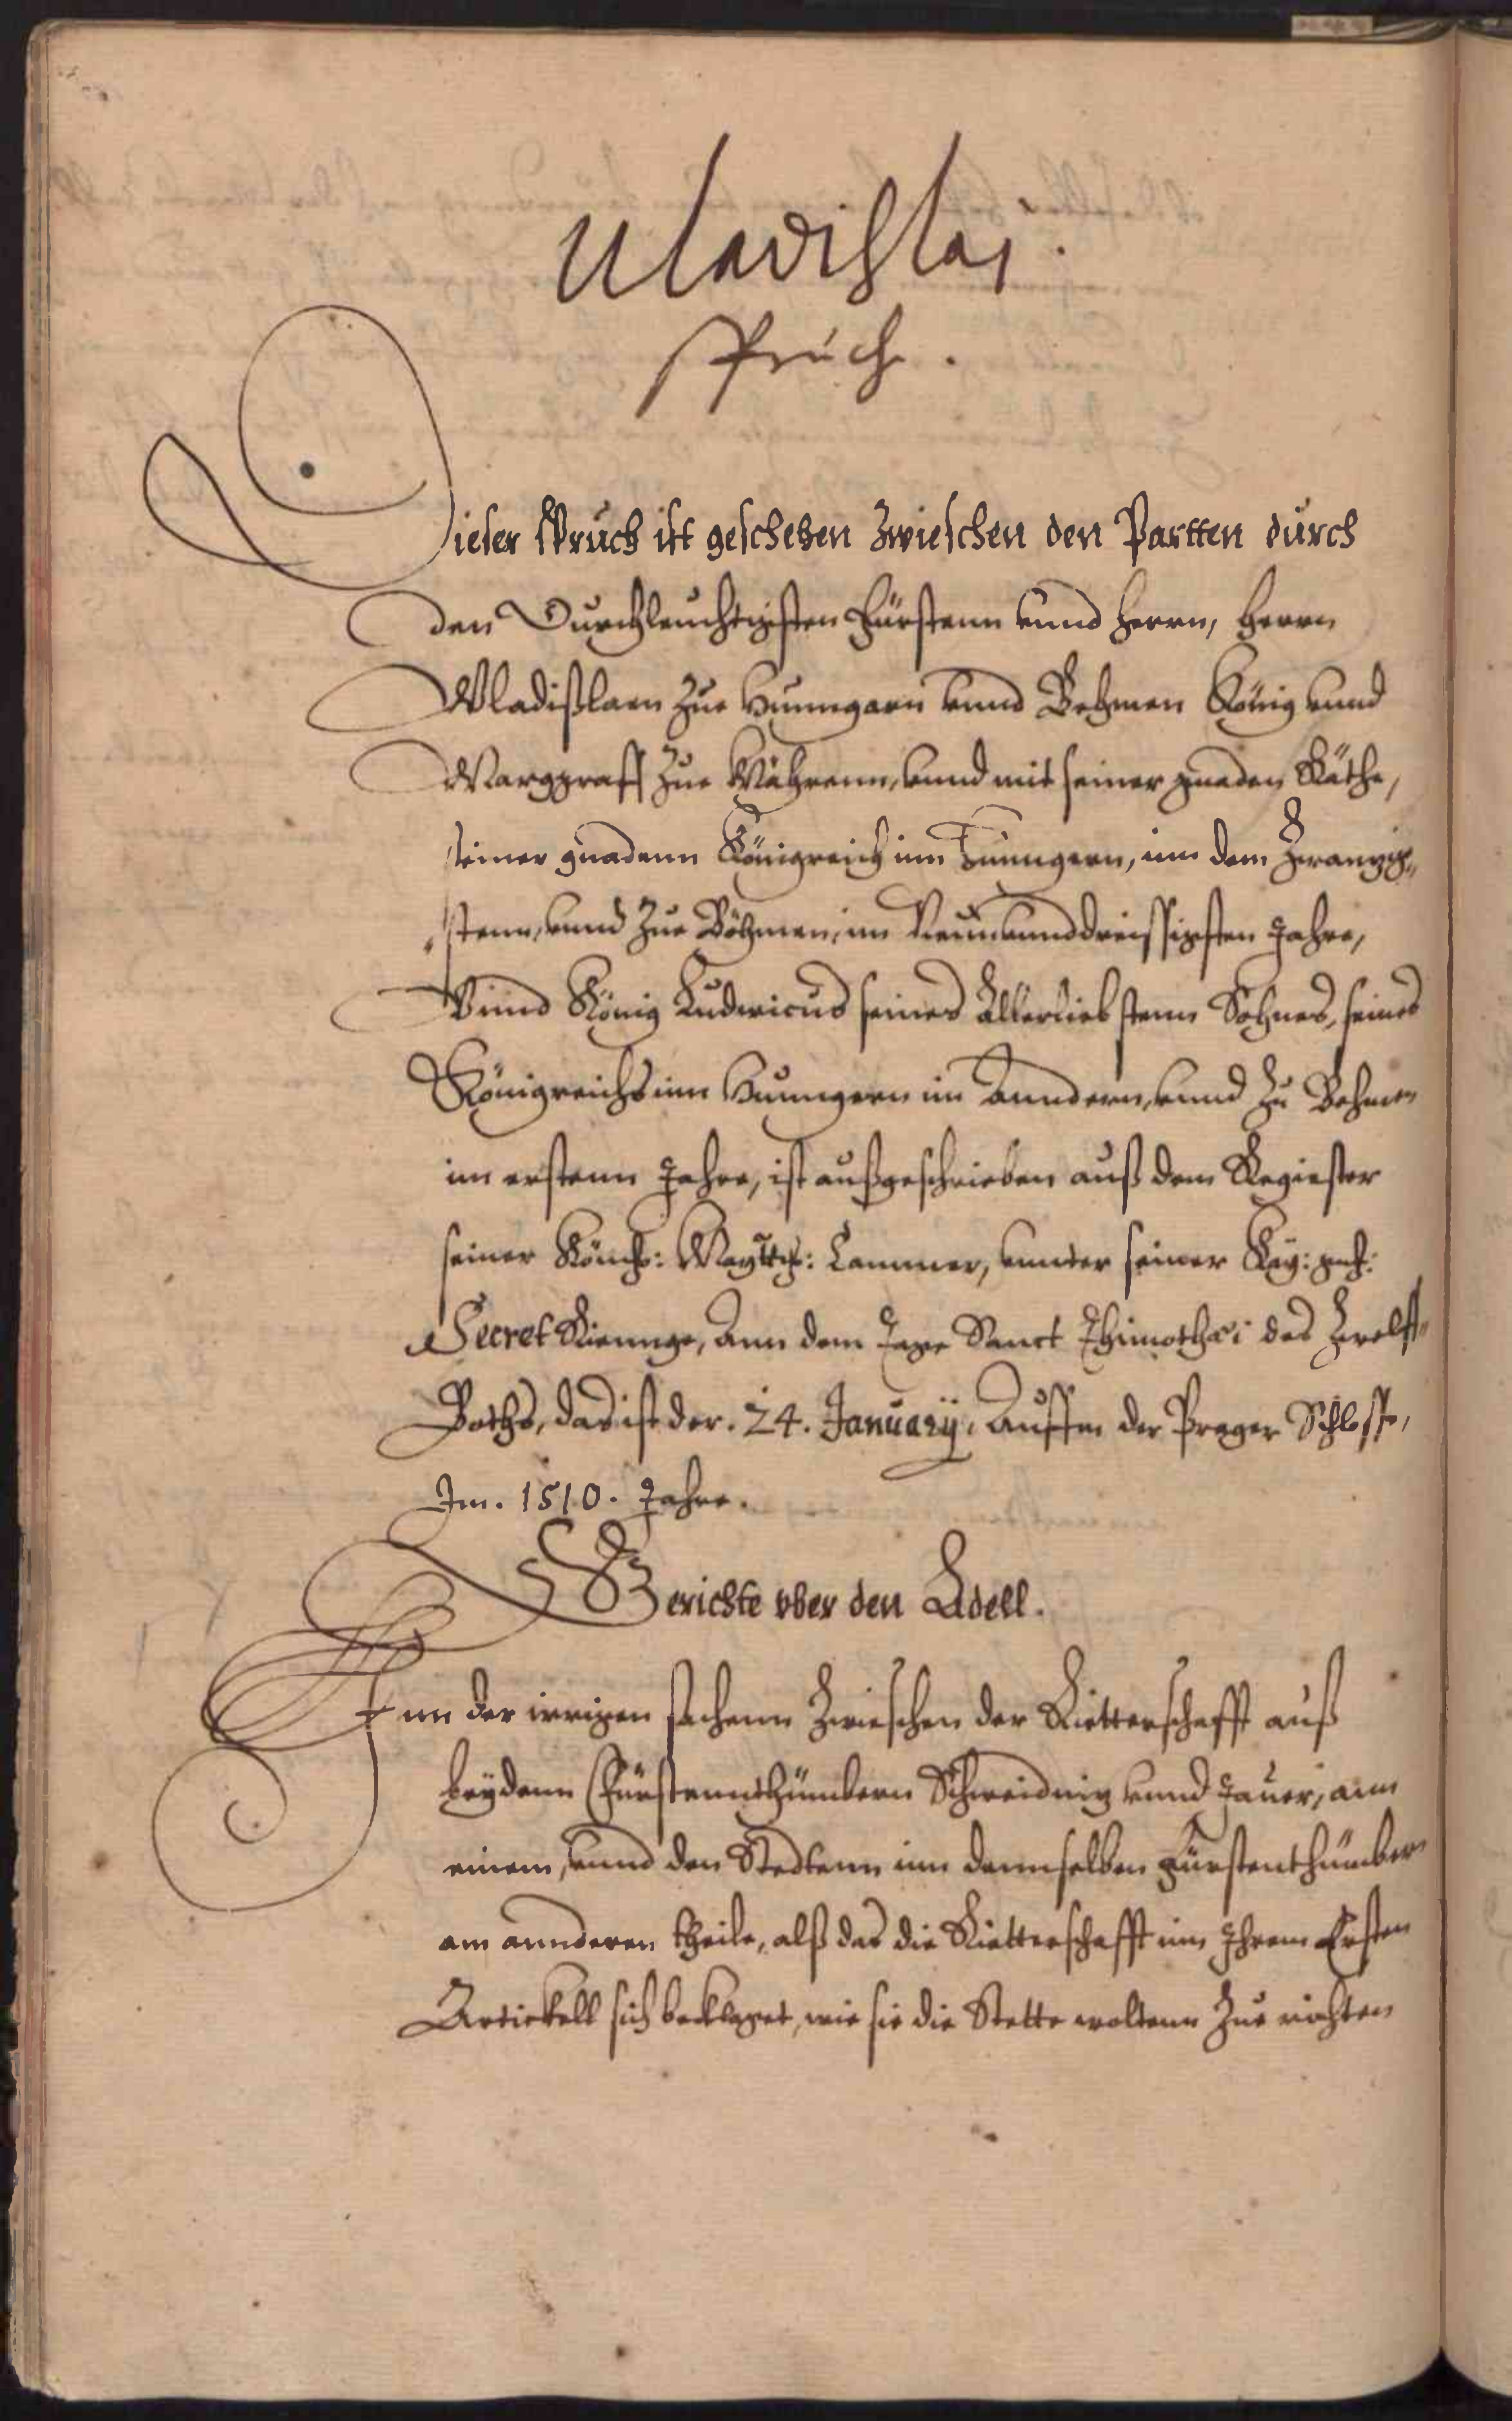 Uladislai.
Spruch.
Dieser Spruch ist geschehen Zwieschen den Partten durch
den Durchleuchtigisten Fürstenn vnnd Herrn, Herrn
Wladißlaen Zue Hunngarn vnnd Behmen König vnnd
Marggraff Zue Mährenn, vnnd mit seiner gnaden Räthe,
seiner gnadenn Königreich inn Hunngern, inn dem Zwanzig„
stenn, vnnd Zue Böhmen, im Neunvnnddreissigisten Jahre,
Vnnd König Ludwicus seines Allerliebstenn Sohnes, seines
Königreichs inn Hunngern im Anndern, vnnd Zu Behmen
im erstenn Jahre, ist außgeschrieben auß dem Regiester
seiner Königl: Maytt: Cammer, vnnter seiner Kay: gnd:
Secret Riennge, Ann dem Tage Sanct Thimothæi des Zwelff„
Boths, das ist der. 24. Januarÿ, Auffm der Prager Schlosse,
Im. 1510. Jahre.
Gerichte vber den Adell.
Inn der irrigen sachenn Zwieschen der Ritterschafft auß
beydenn Fürstennthümbern Schweidnig vnnd Jauer, ann
einem, vnnd den Stedtenn inn dennselben Fürstenthümbern
am annderen theile, alß das die Ritterschafft inn Ihrem Ersten
Artickell sich beklaget, wie sie die Stette woltenn Zue richten